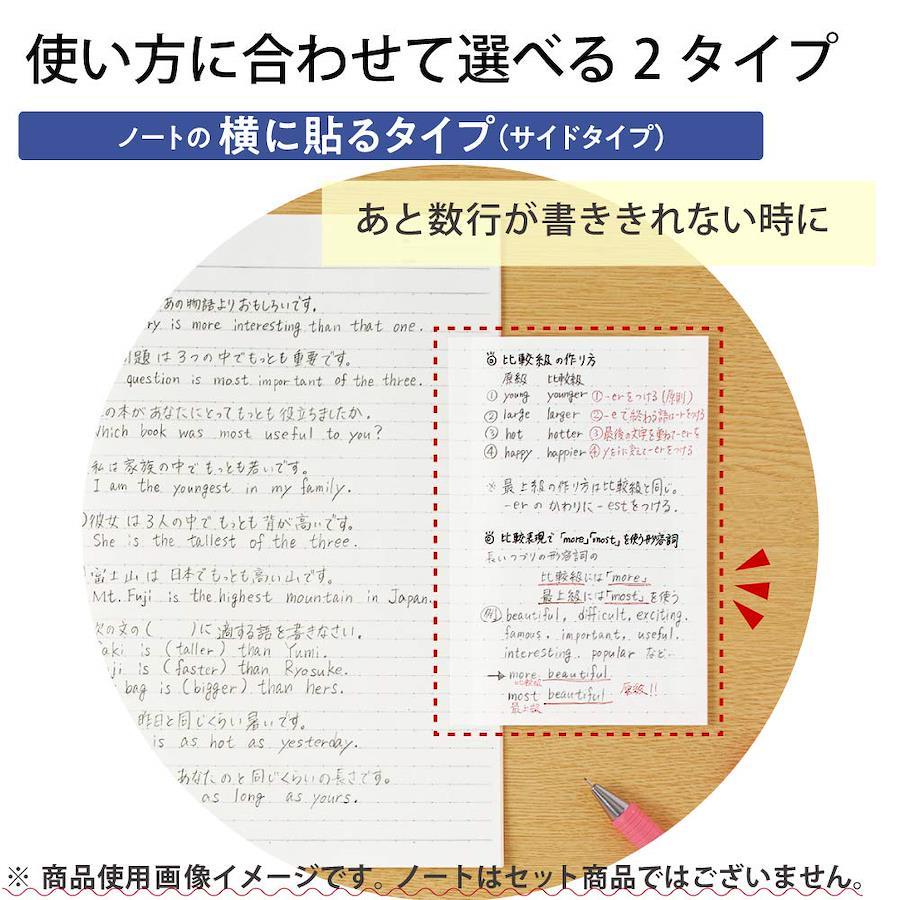 使い方に合わせて選べる2タイプ
ノートの横に貼るタイプ(サイドタイプ)
あと数行が書ききれない時に
あの物語よりおもしろいです。
ry is more interesting than that one.
題は3つの中でもっとも重要です。
question is most important of the three.
の本があなたにとってもっとも役立ちましたか。
Which book was most useful to you?
私は家族の中でもっとも若いです。
I am the youngest in my family.
彼女は3人の中でもっとも背が高いです。
She is the tallest of the three.
富士山は日本でもっとも高い山です。
Mt. Fuji is the highest mountain in Japan.
次の文の( )に適する語を書きなさい。
aki is (taller) than Yumi.
ji is (faster) than Ryosuke.
bag is (bigger) than hers.
昨日と同じくらい暑いです。
is as hot as yesterday.
あなたのと同じくらいの長さです。
as long as yours.
比較級の作り方
原級 比較級
① young younger ①-erをつける(原則)
② large larger ②-eで終わる語は-rをつける
③ hot hotter ③最後の文字を重ねて-erを
④ happy happier ④yをiに変えて-erをつける
※ 最上級の作り方は比較級と同じ。
-erのかわりに-estをつける。
比較表現で「more」「most」を使う形容詞
長いつづりの形容詞の
比較級には「more」
最上級には「most」を使う
例 beautiful, difficult, exciting,
famous, important, useful,
interesting, popular など…
→ more beautiful
比較級
most beautiful 原級!!
最上級
※ 商品使用画像イメージです。ノートはセット商品ではございません。